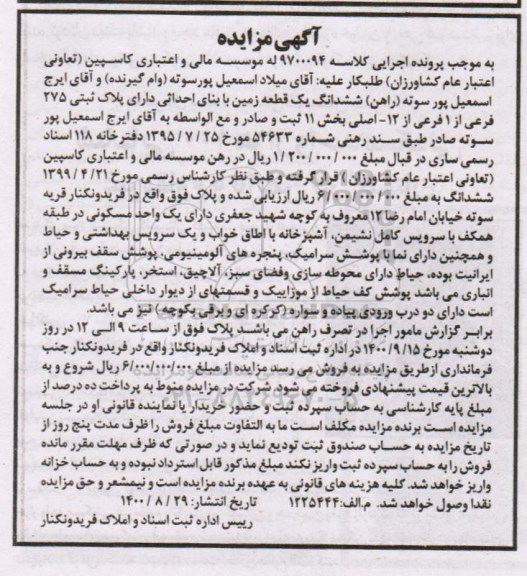 آگهی مزایده
به موجب پرونده اجرایی کلاسه ۹۷۰۰۰۹۴ له موسسه مالی و اعتباری کاسپین (تعاونی
اعتبار عام کشاورزان) طلبکار علیه: آقای میلاد اسمعیل پورسوته (وام گیرنده) و آقای ایرج
اسمعیل پور سوته (راهن) ششدانگ یک قطعه زمین با بنای احداثی دارای پلاک ثبتی ۲۷۵
فرعی از ۱ فرعی از ۱۲- اصلی بخش ۱۱ ثبت و صادر و مع الواسطه به آقای ایرج اسمعیل پور
سوته صادر طبق سند رهنی شماره ۵۴۶۳۳ مورخ ۲۵ / ۷ / ۱۳۹۵ دفترخانه ۱۱۸ اسناد
رسمی ساری در قبال مبلغ ۰۰۰ / ۰۰۰ / ۲۰۰ / ۱ ریال در رهن موسسه مالی و اعتباری کاسپین
(تعاونی اعتبار عام کشاورزان) قرار گرفته و طبق نظر کارشناس رسمی مورخ ۲۱ / ۴ / ۱۳۹۹
ششدانگ به مبلغ ۶/۰۰۰/۰۰۰/۰۰۰ ریال ارزیابی شده و پلاک فوق واقع در فریدونکنار قریه
سوته خیابان امام رضا ۱۲ معروف به کوچه شهید جعفری دارای یک واحد مسکونی در طبقه
همکف با سرویس کامل نشیمن، آشپزخانه با اطاق خواب و یک سرویس بهداشتی و حیاط
و همچنین دارای نما با پوشش سرامیک، پنجره های آلومینیومی، پوشش سقف بیرونی از
ایرانیت بوده، حیاط دارای محوطه سازی وفضای سبز، آلاچیق، استخر، پارکینگ مسقف و
انباری می باشد پوشش کف حیاط از موزاییک و قسمتهای از دیوار داخلی حیاط سرامیک
است دارای دو درب ورودی پیاده و سواره (کرکره ای و برقی بکوچه) نیز می باشد.
برابر گزارش مامور اجرا در تصرف راهن می باشد پلاک فوق از ساعت ۹ الی ۱۲ در روز
دوشنبه مورخ ۱۴۰۰/۹/۱۵ در اداره ثبت اسناد و املاک فریدونکنار واقع در فریدونکنار جنب
فرمانداری ازطریق مزایده به فروش می رسد مزایده از مبلغ ۶/۰۰۰/۰۰۰/۰۰۰ ریال شروع و به
بالاترین قیمت پیشنهادی فروخته می شود. شرکت در مزایده منوط به پرداخت ده درصد از
مبلغ پایه کارشناسی به حساب سپرده ثبت و حضور خریدار یا نماینده قانونی او در جلسه
مزایده است برنده مزایده مکلف است ما به التفاوت مبلغ فروش را ظرف مدت پنج روز از
تاریخ مزایده به حساب صندوق ثبت تودیع نماید و در صورتی که ظرف مهلت مقرر مانده
فروش را به حساب سپرده ثبت واریز نکند مبلغ مذکور قابل استرداد نبوده و به حساب خزانه
واریز خواهد شد. کلیه هزینه های قانونی به عهده برنده مزایده است و نیمعشر و حق مزایده
نقدا وصول خواهد شد. م.الف: ۱۲۳۵۴۴۴ تاریخ انتشار: ۲۹ / ۸ / ۱۴۰۰
رییس اداره ثبت اسناد و املاک فریدونکنار